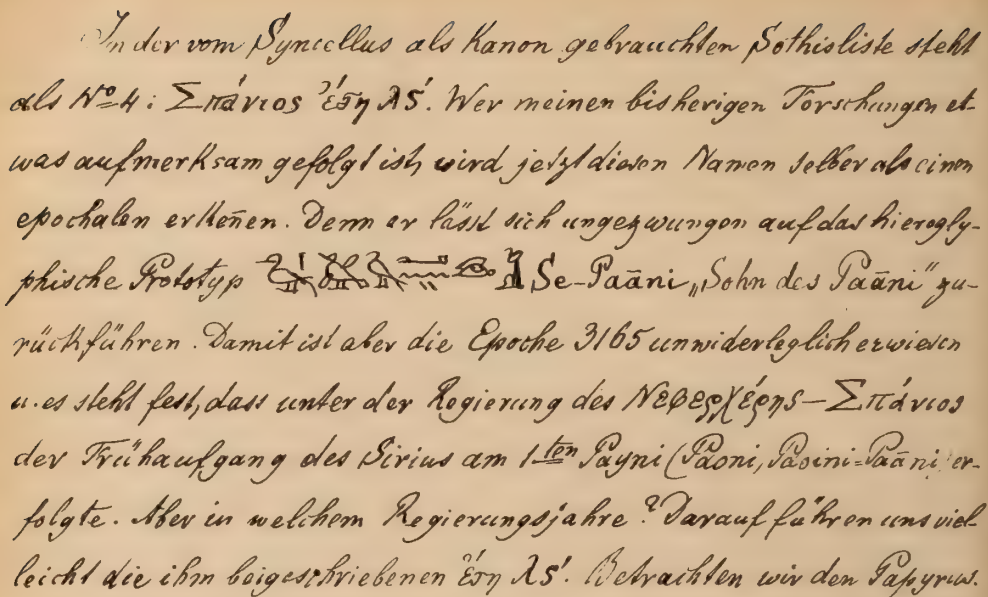 In der vom Syncellus als Kanon gebrauchten Sothisliste steht
als No 4: Σπάνιος ἔτη λϛ´. Wer meinen bisherigen Forschungen et-
was aufmerksam gefolgt ist, wird jetzt diesen Namen selber als einen
epochalen erkeñen. Denn er lässt sich ungezwungen auf das hierogly-
phische Prototyp Se-Paāni „Sohn des Paāni" zu-
rückführen. Damit ist aber die Epoche 3165 unwiderleglich erwiesen
u. es steht fest, dass unter der Regierung des Νεφερχέρης–Σπάνιος
der Frühaufgang des Sirius am 1ten Payni (Paoni, Paoini=Paāni) er-
folgte. Aber in welchem Regierungsjahre? Darauf führen uns viel-
leicht die ihm beigeschriebenen ἔτη λϛ´. Betrachten wir den Papyrus.